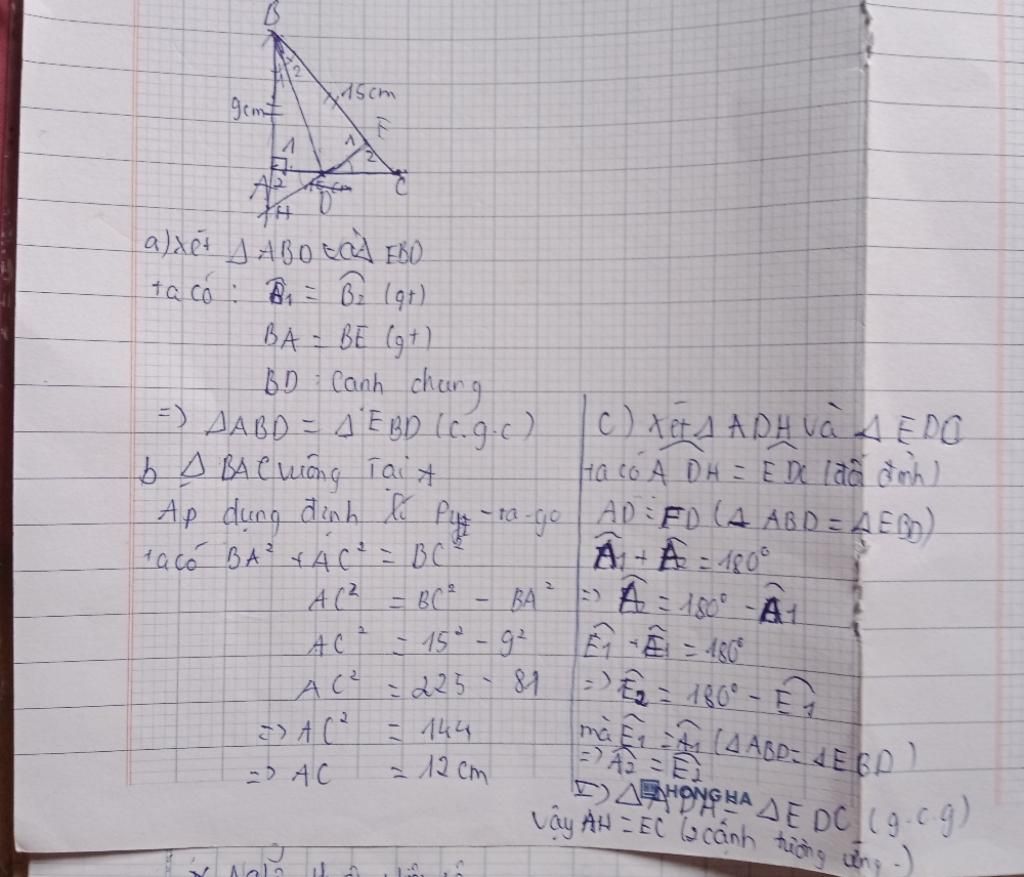 B
1 2
9cm
15cm
E
1
1 2
A 2
cm
C
H
D
a) Xét Δ ABD và Δ EBD
ta có : B̂1 = B̂2 (gt)
BA = BE (gt)
BD : Cạnh chung
=> ΔABD = Δ EBD (c.g.c)
b Δ BAC vuông Tại A
Áp dụng định lí Py-ta-go
ta có BA² + AC² = BC²
AC² = BC² - BA²
AC² = 15² - 9²
AC² = 225 - 81
=> AC² = 144
=> AC = 12 cm
C) Xét Δ ADH và Δ EDC
ta có A DH = EDC (đối đỉnh)
AD = ED (Δ ABD = ΔEBD)
Â1 + Â2 = 180°
=> Â2 = 180° - Â1
Ê1 + Ê1 = 180°
=> Ê2 = 180° - Ê1
mà Ê1 = Â1 (ΔABD = ΔEBD)
=> Â2 = Ê2
=> Δ ADH = Δ EDC (g.c.g)
HONG HA
Vậy AH = EC (2 cạnh tương ứng.)